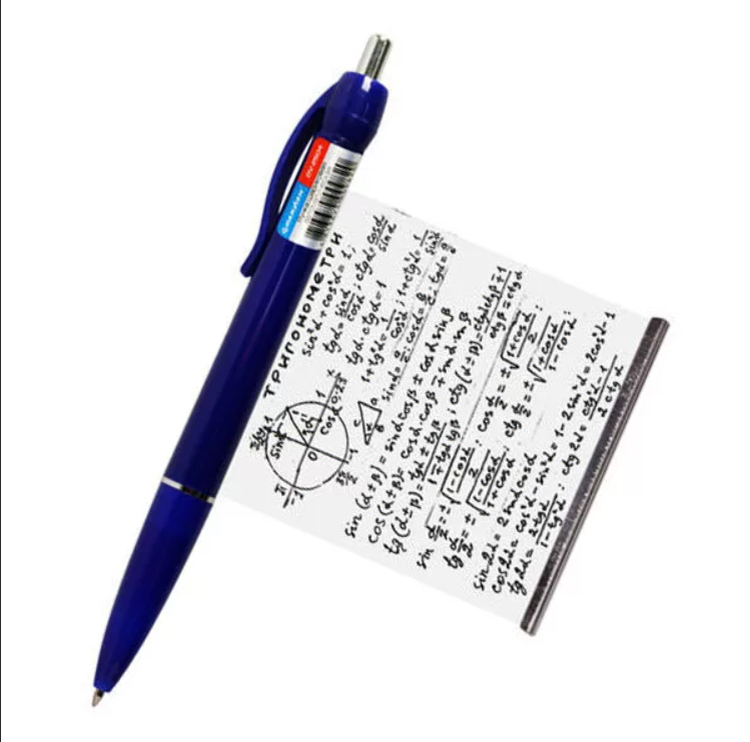 ТРИГОНОМЕТРИ
sin²α+cos²α=1;
tgα=sinα/cosα; ctgα=cosα/sinα
tgα·ctgα=1
1+tg²α=1/cos²α; 1+ctg²α=1/sin²α
sin(α±β)=sinαcosβ±cosαsinβ
cos(α±β)=cosαcosβ∓sinαsinβ
tg(α±β)=tgα±tgβ/1∓tgαtgβ; ctg(α±β)=ctgαctgβ∓1/ctgβ±ctgα
sin α/2=±√1-cosα/2; cos α/2=±√1+cosα/2;
tg α/2=±√1-cosα/1+cosα; ctg α/2=±√1+cosα/1-cosα;
sin2α=2sinαcosα
cos2α=cos²α-sin²α=1-2sin²α=2cos²α-1
tg2α=2tgα/1-tg²α; ctg2α=ctg²α-1/2ctgα